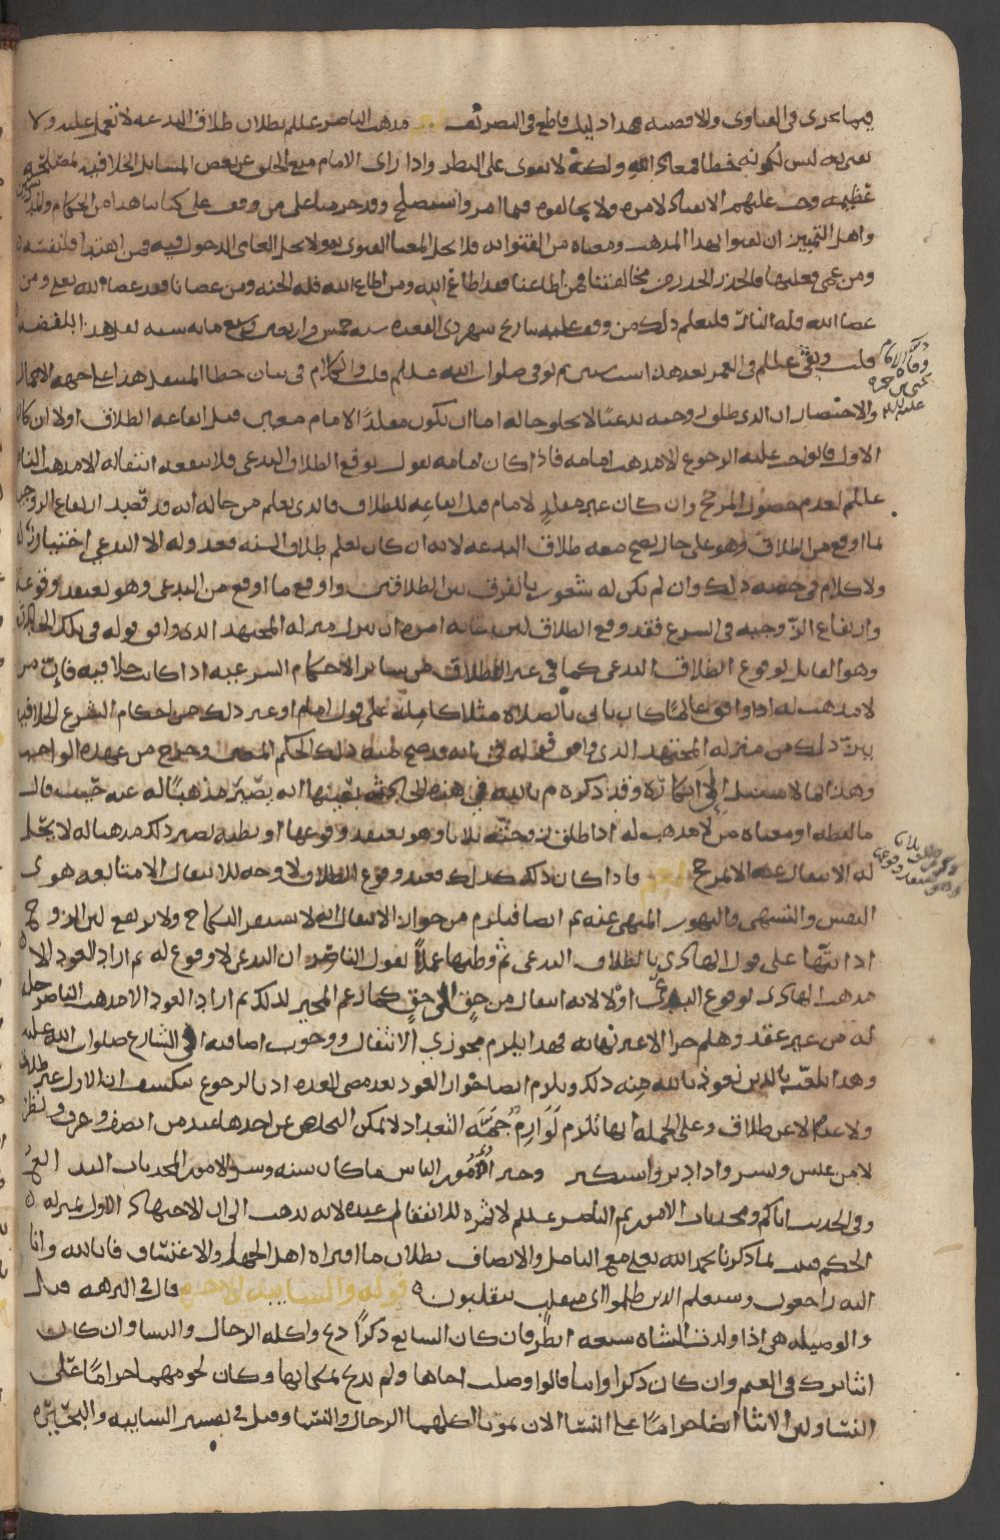 فيما يجرى فى الفتاوى والاقضيه فهذا دليل قاطع فى التصرف مذهب الناصر علللم بطلان طلاق البدعه لا نعمل عليه ولا
لكونه خطا معاذ الله ولكنه لا يقوى على النظر واذا راى الامام منع الخلق عن بعض المسايل الخلافيه لمصلحه
عظيمه وجب عليهم الانقياد لامره ولا يخالفوه فيما امر واستصلح وقد حرمنا على من وقف على كتابنا هذا من الحكام
واهل التمييز ان يفتوا بهذا المذهب ومعناه من الفتوا به فلا يحل لمفتٍ الفتوى به ولا يحل لعامى الدخول فيه فمن اهتدا فلنفسه
ومن عمى فعليها فالحذر الحذر من مخالفتنا فمن اطاعنا فقد اطاع الله ومن اطاع الله فله الجنه ومن عصانا فقد عصا الله تعلى ومن
عصا الله فله النار فليعلم ذلك من وقف عليه بتاريخ شهر ذى القعده سنه خمس واربعين وسبع مايه سنه
قلت وبقى علللم فى العمر بعد هذا سنتين ثم توفى صلوات الله علللم قلت والكلام فى بيان خطا المنتقل هذا على جهه الاجمال
والاختصار ان الذى طلق زوجته بدعيًا لا يخلو حاله اما ان يكون مقلدًا لامام معين قبل ايقاعه الطلاق اولا ان كان
الاول فالواجب عليه الرجوع الى مذهب امامه فاذا كان امامه يقول بوقوع الطلاق البدعى فلا ينفعه انتقاله الى مذهب الناصر
علللم لعدم حصول المرجح وان كان غير مقلدٍ لامام قبل ايقاعه للطلاق فالذى يعلم من حاله انه قد قصد ارتفاع الزوجيه
بما اوقع من الطلاق وهو على حال يصح معه طلاق البدعه لانه ان كان يعلم طلاق السنه فعدوله الى البدعى اختيارا له
ولا كلام فى صحه ذلك وان لم يكن له شعور بالفرق بين الطلاقين واوقع ما اوقع من البدعى وهو يعتقد وقوعه
وارتفاع الزوجيه فى الشرع فقد وقع الطلاق لان غايه امره ان ينزل منزله المجتهد الذى وافق قوله فى تلك الحادثه
وهو القايل بوقوع الطلاق البدعى كما فى غير الطلاق من ساير الاحكام الشرعيه اذا كانت خلافيه فان من
لا مذهب له اذا وافق عالمًا كان ياتى بالصلاة مثلا كاملة على قول امام او غير ذلك من احكام الشرع الخلافيه
ينزل ذلك من منزله المجتهد الذى وافق قوله فى انه قد صح منه ذلك الحكم المعين وخرج من عهده الواجب
وهذا مما لا سبيل الى انكاره وقد ذكره م بالله فى هذه المسئله بعينها انه يصير مذهبًا له عنه حيث قال
ما لفظه او معناه من لا مذهب له اذا طلق زوجته ثلاثا وهو يعتقد وقوعها او يظنه يصير ذلك مذهبا له لا يحل
له الانتقال عنه الا لمرجح فاذا كان ذلك كذلك فبعد وقوع الطلاق لا وجه للانتقال الا متابعه هوى
النفس والتشهى والتهور المنهى عنه ثم ايضا فيلزم من جواز الانتقال انه لا يستقر النكاح ولا يرتفع لان الزوج
اذا بتّها على قول الهادى بالطلاق البدعى ثم وطيها عملاً بقول الناصر ان البدعى لا وقوع له ثم اراد العود الى
مذهب الهادى لوقوع البدعى اوّلا لانه انتقال من حقٍ الى حقٍ كما زعم المجيز لذلك ثم اراد العود الى مذهب الناصر حل
له من غير عقد وهلم جرا الى غير نهايه فهذا يلزم مجوزى الانتقال ووجوب اضافته الى الشارع صلوات الله عليه
وهذا تلعّب بالدين نعوذ بالله منه ذلك ويلزم ايضا جواز العود بعد مضى العده اذ بالرجوع ينكشف ان الاول غير طلاق
ولا عده الا عن طلاق وعلى الجمله انها تلزم لَوَازِمُ جمَّة التعداد لا يمكن التخلص عن احدها عند من انصف وعرف ونظر
لا من عبس وبسر وادبر واستكبر وخير اُمُور الناس ما كان سنه وشر الامور المحدثات البدايع
وفى الحديث اياكم ومحدثات الامور ثم الناصر علللم لا ثمره للانتقال عنده لانه يذهب الى ان الاجتهاد الاول بمنزله
الحكم فثبت بما ذكرنا بحمد الله تعلى مع التامل والانصاف بطلان ما افتراه اهل الجهل والاعتساف فانا لله وانا
اليه راجعون وسيعلم الذين ظلموا اى منقلب ينقلبون قوله والسايبه قال فى النزهه قيل
والوصيله هى اذا ولدت الشاه سبعه ابطن فان كان السابع ذكرًا ذبح واكله الرجال والنسا وان كان
انثا ترك فى الغنم وان كان ذكرا وانثا قالوا وصلت اخاها ولم يذبح لمكانها وكان لحومهما حرامًا على
النسا ولبن الانثا ايضا حرامًا على النسا الا ان يموت اكلهما الرجال والنسا وقيل فى تفسير السايبه والبحيره